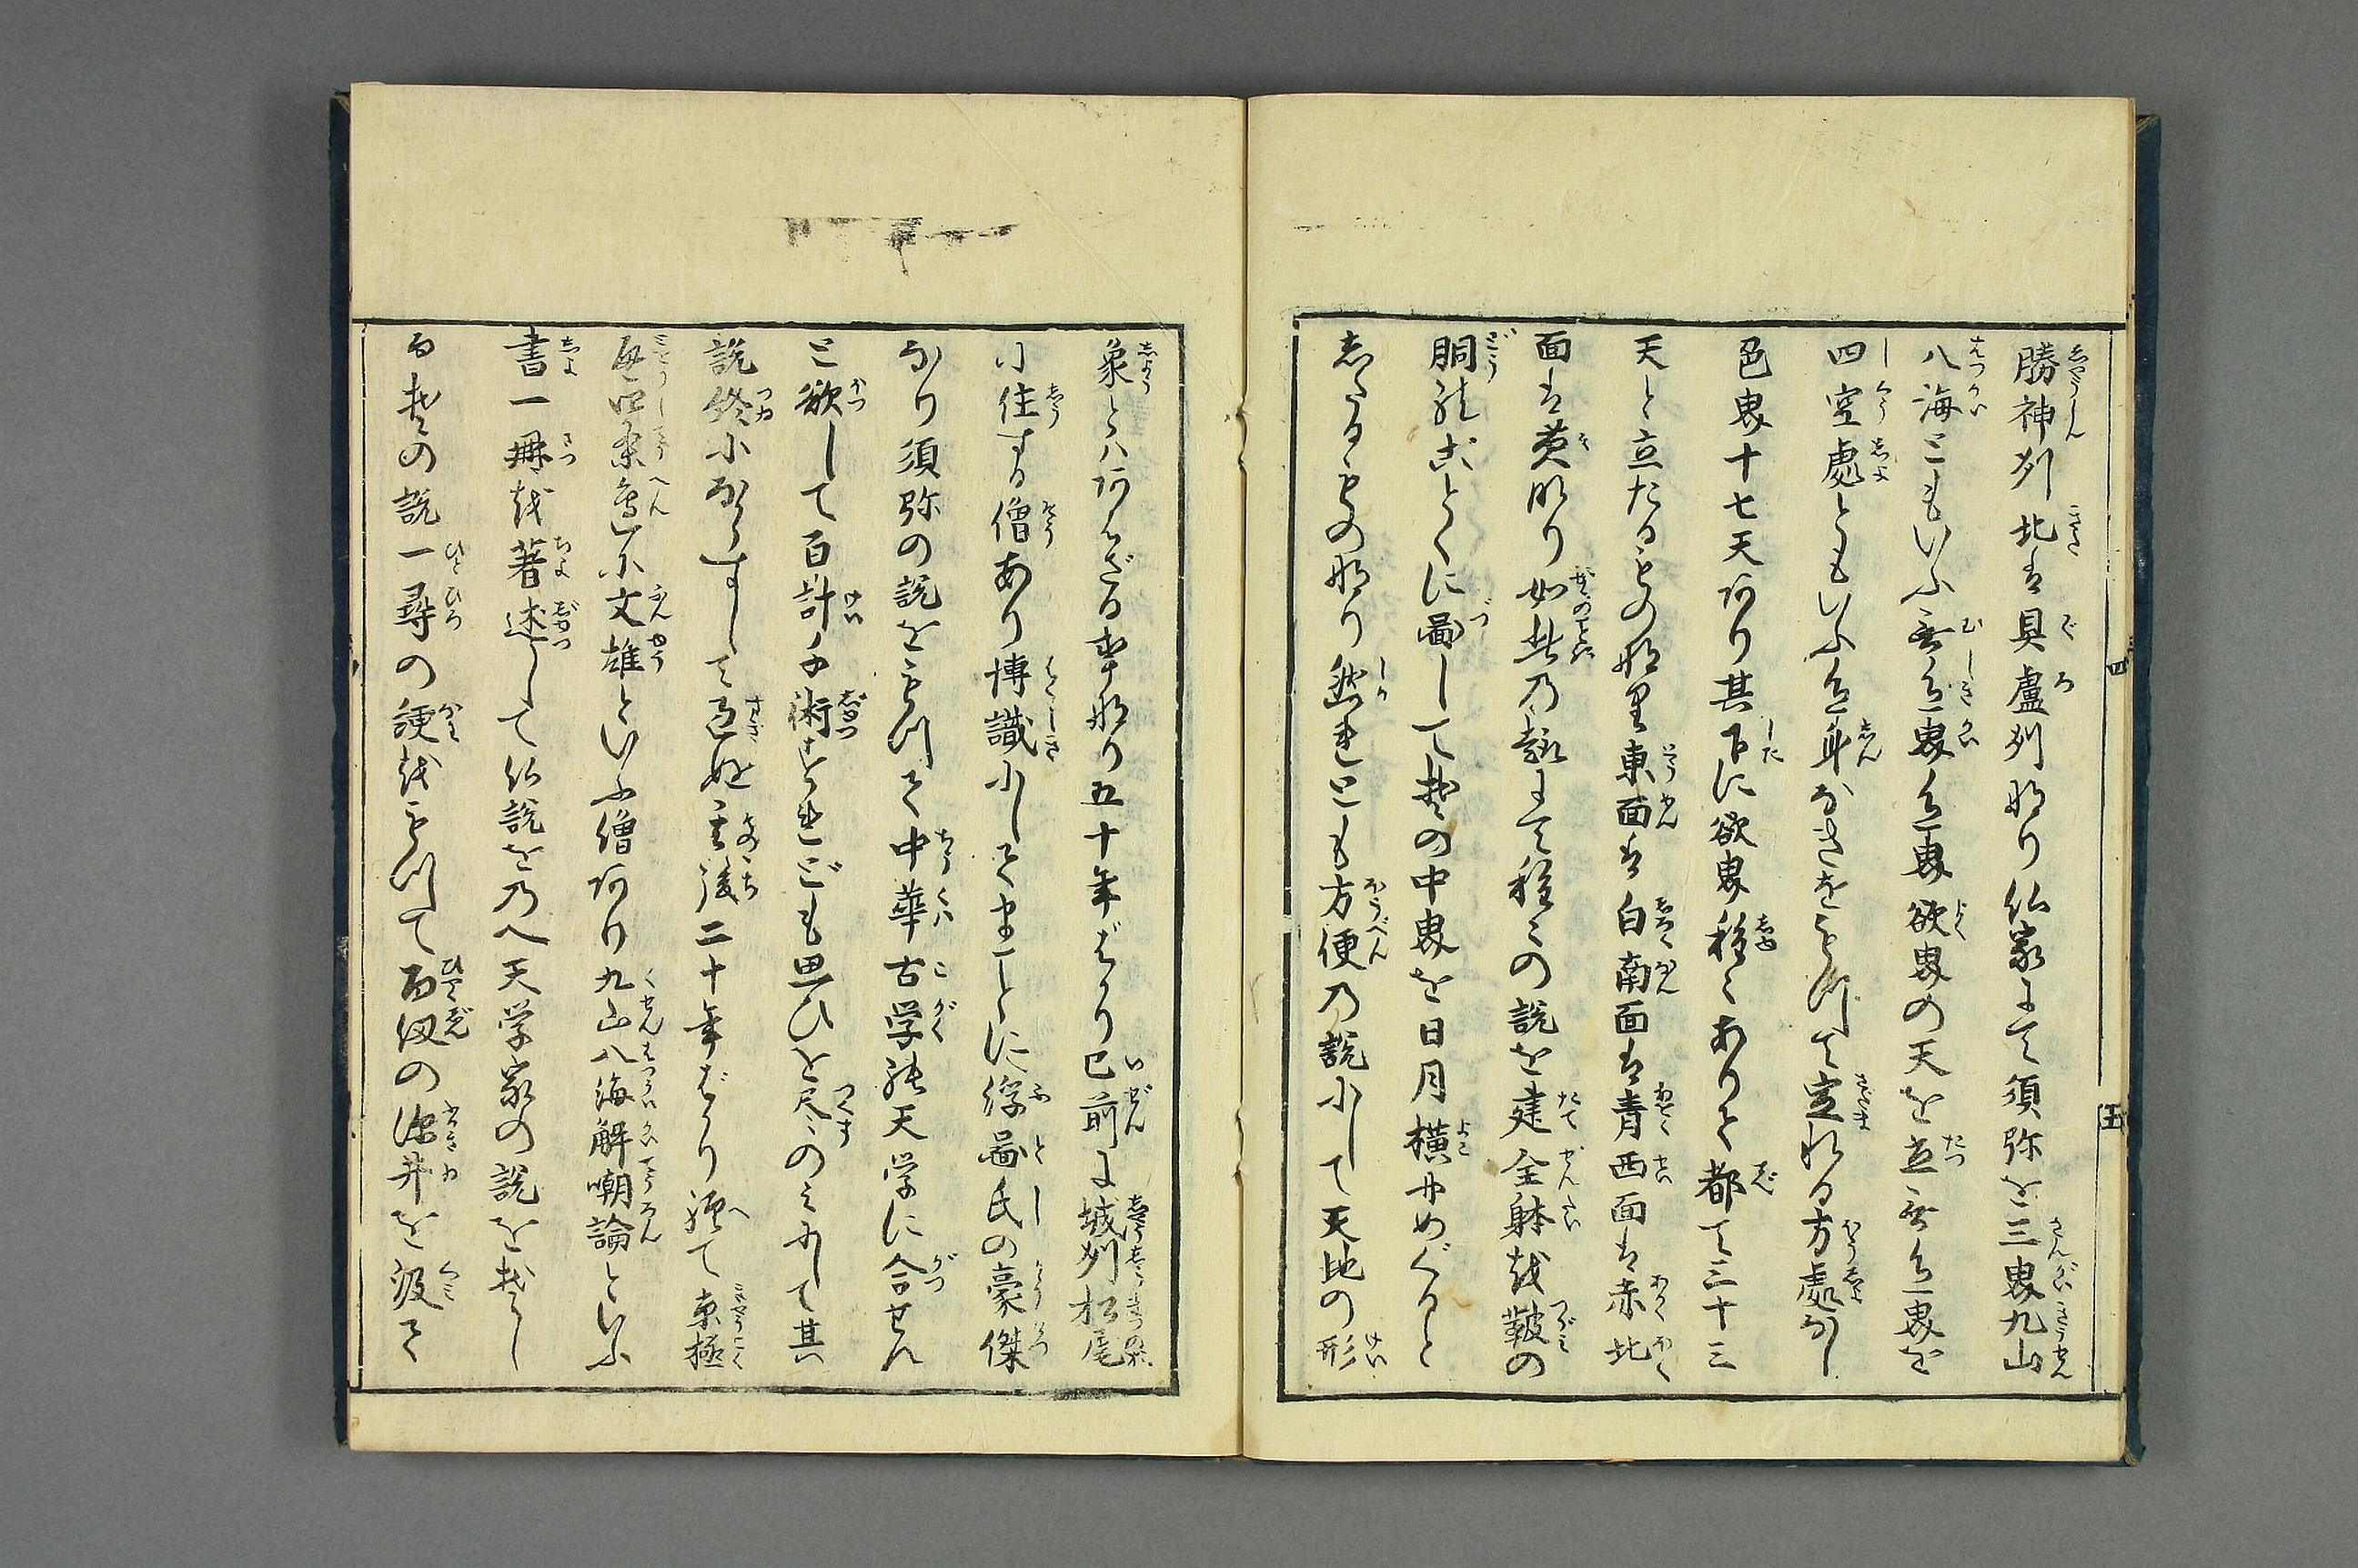 勝神州北は具盧州なり仏家にて須弥を三界九山
八海ともいふ無色界色界欲界の天を立無色界を
四空處ともいふ色身なきをもつて定れる方處なし
色界十七天あり其下に欲界種々ありて都て三十三
天と立たるもの也東面は白南面は青西面は赤北
面は黄なり如此の趣にて種々の説を建全躰を鞁の
胴のごとくに圖して其の中界を日月横にめぐると
したるもの也り然れとも方便の説にして天地の形
象とハあらざる事なり五十年ばかり已前に城州松尾
に住する僧あり博識にしてまことに浮圖氏の豪傑
なり須弥の説をもつて中華古学の天学に合せん
と欲して百計千術すれども思ひを尽すのみにして其
説終にならずして過ぬ其後二十年ばかり経て京極
文雄といふ僧あり九山八海解嘲論といふ
書一冊を著述して仏説をのべ天学家の説を
其の説一尋の綆をもつて百仭の深井を汲て